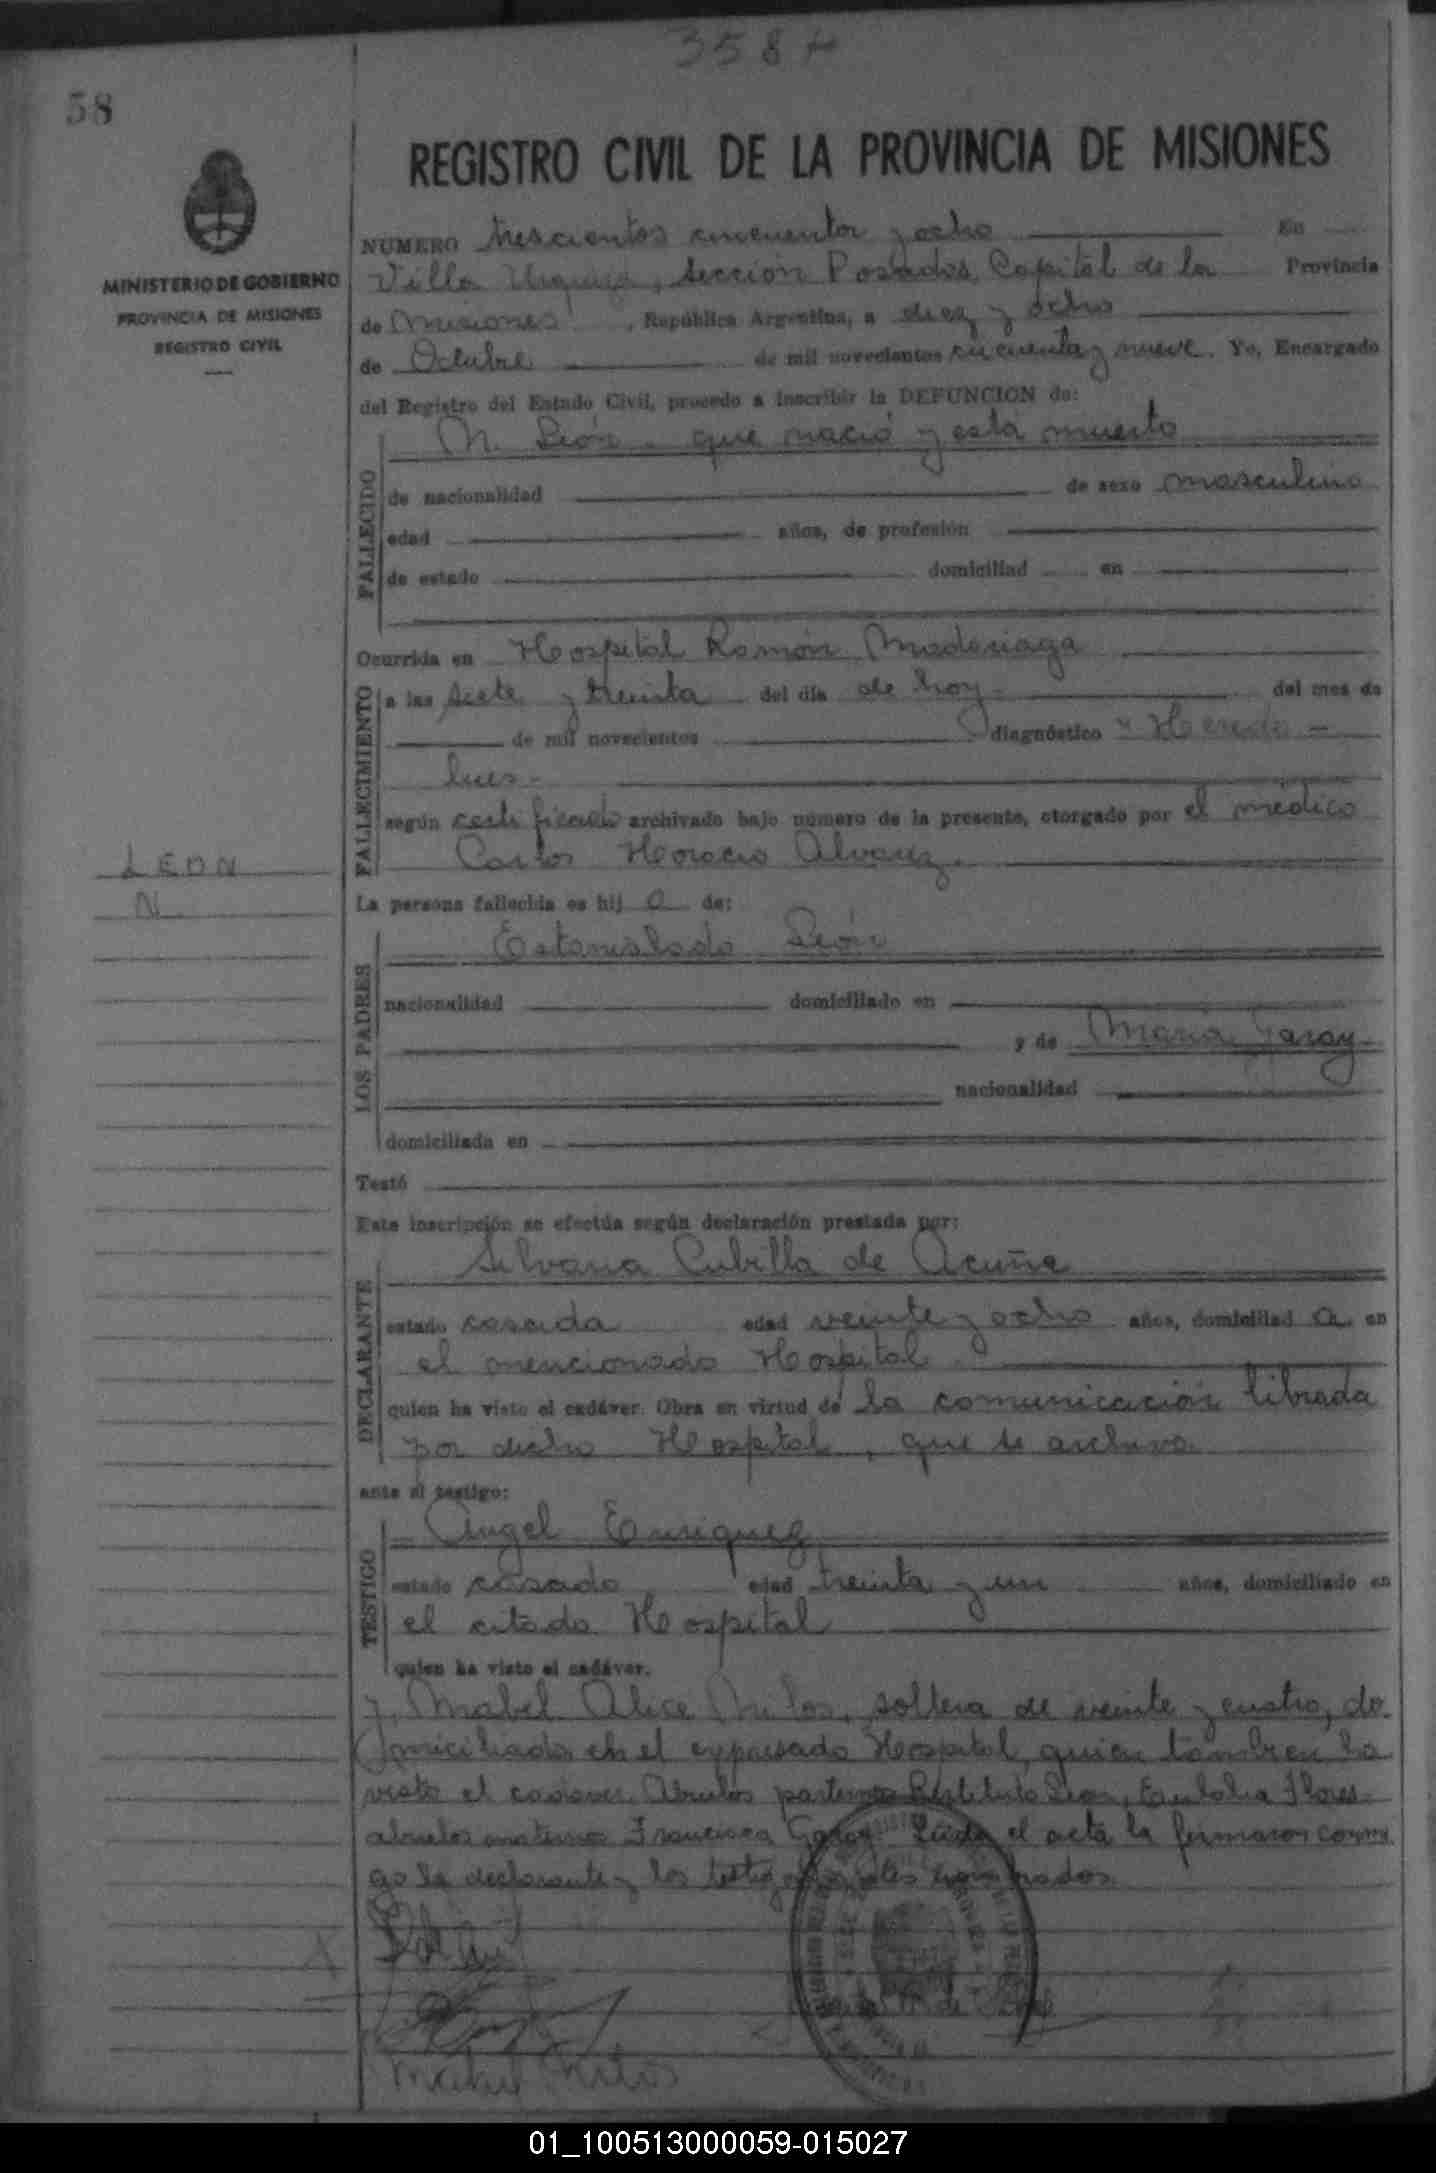 358
58
REGISTRO CIVIL DE LA PROVINCIA DE MISIONES
MINISTERIO DE GOBIERNO
PROVINCIA DE MISIONES
REGISTRO CIVIL
NUMERO trescientos cincuenta y ocho En
Villa Urquiza, Sección Posadas, Capital de la Provincia
de Misiones, República Argentina, a diez y ocho
de Octubre de mil novecientos cincuenta y nueve. Yo, Encargado
del Registro del Estado Civil, procedo a inscribir la DEFUNCION de:
N. León. que nació y está muerto
FALLECIDO
de nacionalidad de sexo masculino
edad años, de profesión
de estado domiciliad en
Ocurrida en Hospital Ramón Madariaga
FALLECIMIENTO
a las siete y treinta del día de hoy. del mes de
de mil novecientos diagnóstico "Heredo-
lues-
según certificado archivado bajo número de la presente, otorgado por el médico
Carlos Horacio Alvarez.
LEON
N.
La persona fallecida es hij o de:
LOS PADRES
Estanislado León
nacionalidad domiciliado en
y de María Garay
nacionalidad
domiciliada en
Testó
Esta inscripción se efectúa según declaración prestada por:
DECLARANTE
Silvana Cubilla de Acuña
estado casada edad veinte y ocho años, domiciliad a en
el mencionado Hospital.
quien ha visto el cadáver. Obra en virtud de la comunicación librada
por dicho Hospital, que se archiva.
ante el testigo:
TESTIGO
Angel Enriquez
estado casado, edad treinta y un años, domiciliado en
el citado Hospital
quien ha visto el cadáver.
y, Mabel Alice, soltera de veinte y cuatro, do
miciliada en el expresado Hospital, quien tambien ha
visto el cadaver. Abuelos paternos Restituto León, Eulalia Flores-
abuelos maternos Francisca Garay. Leída el acta la firmaron conmi
go la declarante y los testigos antes nombrados.
Mabel
01_100513000059-015027